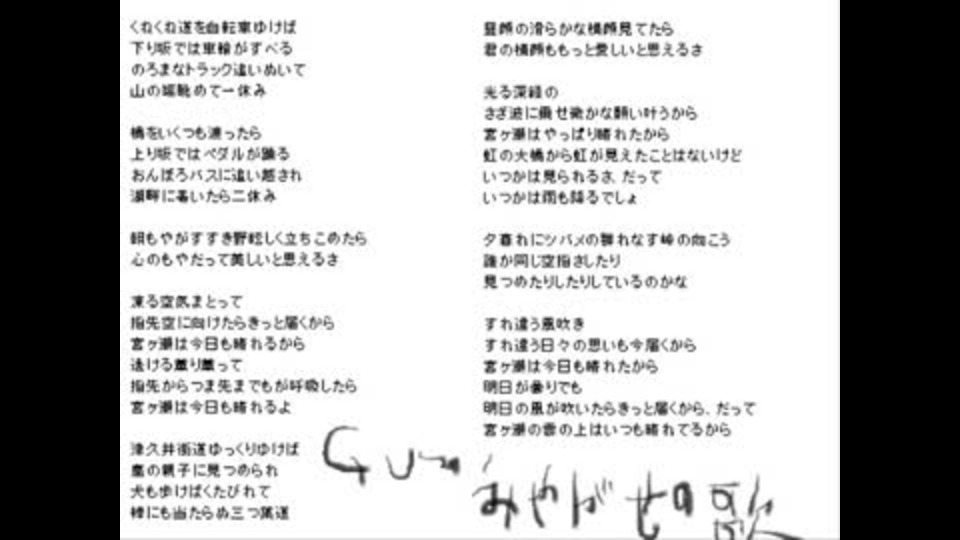 くねくね道を自転車ゆけば
下り坂では車輪がすべる
のろまなトラック追いぬいて
山の端眺めて一休み
橋をいくつも渡ったら
上り坂ではペダルが踊る
おんぼろバスに追い越され
湖畔に着いたら二休み
朝もやがすすき野眩しく立ちこめたら
心のもやだって美しいと思えるさ
凍る空気まとって
指先空に向けたらきっと届くから
宮ヶ瀬は今日も晴れるから
透ける薫り纏って
指先からつま先までもが呼吸したら
宮ヶ瀬は今日も晴れるよ
津久井街道ゆっくりゆけば
鹿の親子に見つめられ
犬も歩けばくたびれて
棒にも当たらぬ三つ葉道
昼顔の滑らかな横顔見てたら
君の横顔ももっと愛しいと思えるさ
光る深緑の
さざ波に乗せ微かな願い叶うから
宮ヶ瀬はやっぱり晴れたから
虹の大橋から虹が見えたことはないけど
いつかは見られるさ、だって
いつかは雨も降るでしょ
夕暮れにツバメの群れなす峠の向こう
誰か同じ空指さしたり
見つめたりしたりしているのかな
すれ違う風吹き
すれ違う日々の思いも今届くから
宮ヶ瀬は今日も晴れたから
明日が曇りでも
明日の風が吹いたらきっと届くから、だって
宮ヶ瀬の雲の上はいつも晴れてるから
みやがせの歌